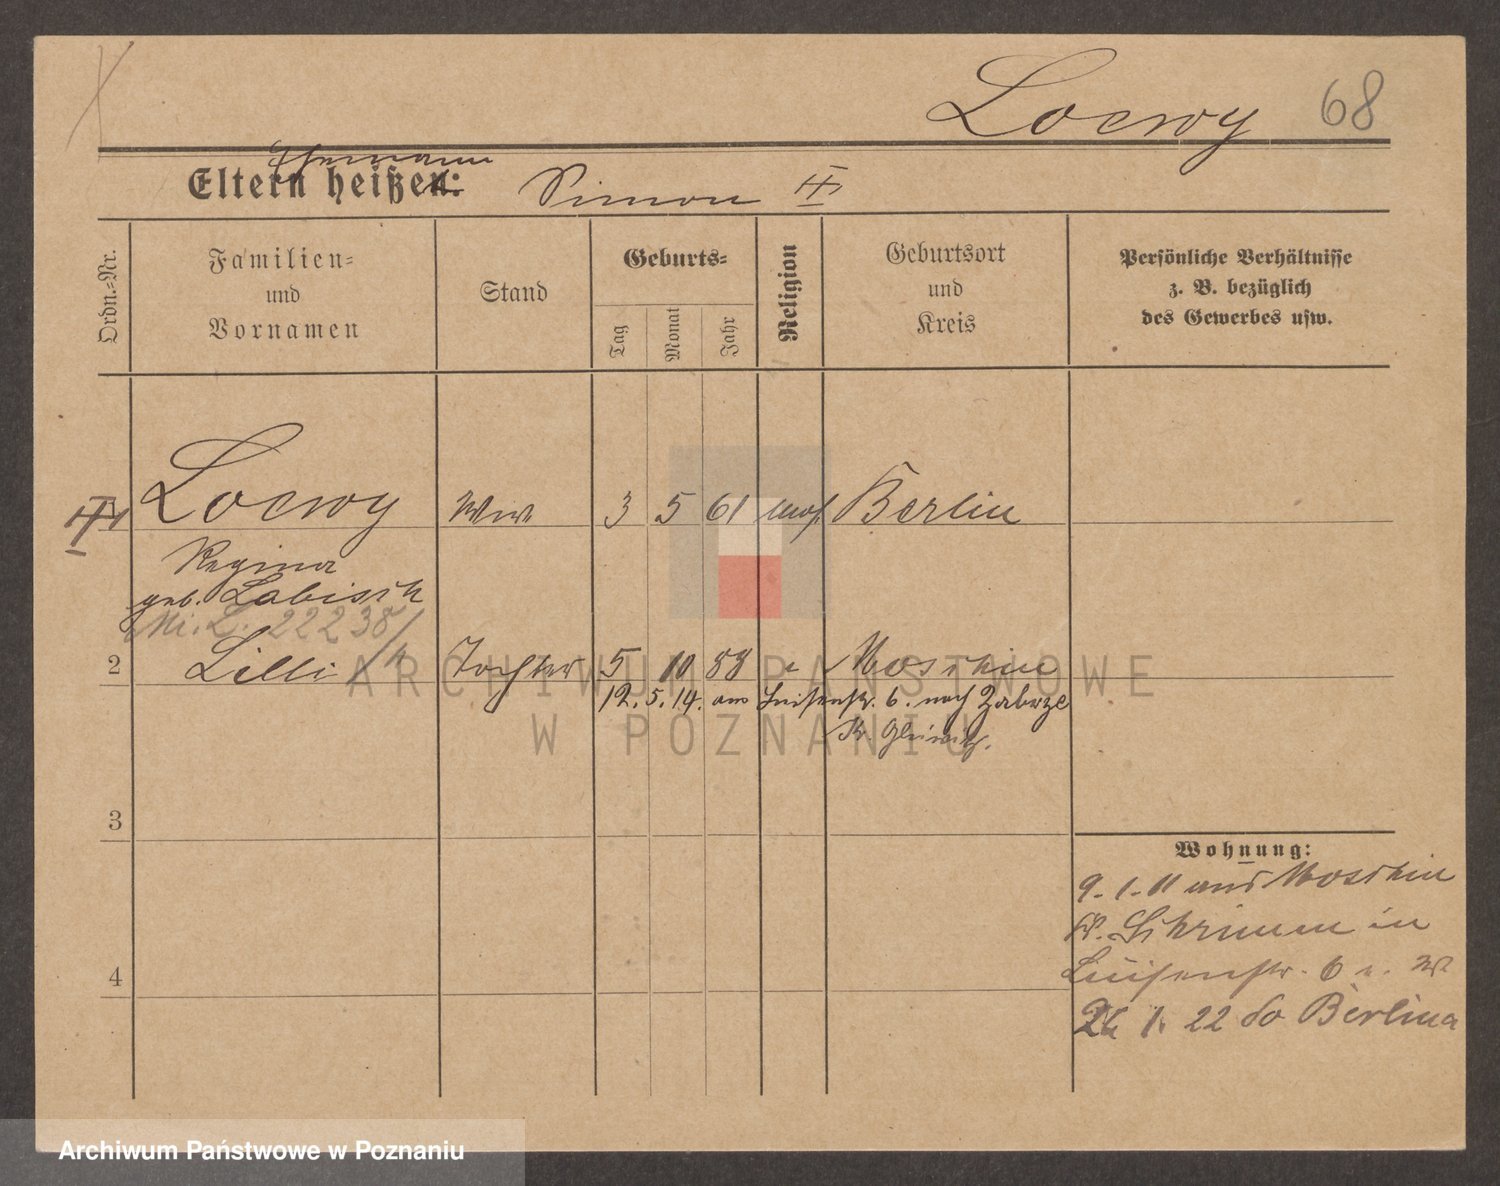 Loewy 68
Ehemann
Eltern heißen: Simon
Ordn.=Nr.
Familien=
und
Vornamen
Stand
Geburts=
Tag
Monat
Jahr
Religion
Geburtsort
und
Kreis
Persönliche Verhältnisse
z. B. bezüglich
des Gewerbes usw.
Loewy Wwe 3 5 61 mos. Berlin
Regina
geb. Labisch
22238/
2 Lilli Tochter 5 10 88 " Moschin
12. 5. 14. von Luisenstr. 6. nach Zabrze
Kr. Gleiwitz.
3
Wohnung:
9. 1. 11 aus Moschin
Kr. Schrimm in
Luisenstr. 6
4
1. 22 Berlina
ARCHIWUM PAŃSTWOWE
W POZNANIU
Archiwum Państwowe w Poznaniu